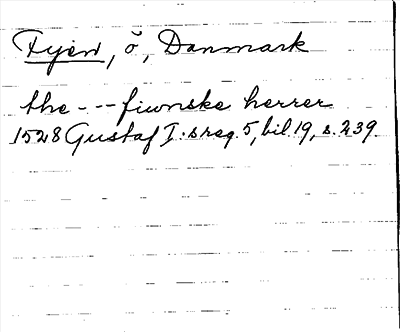 Fyen, ö, Danmark
the - - - fiwnske herrer
1528 Gustaf I:s reg. 5, bil 19, s. 239.